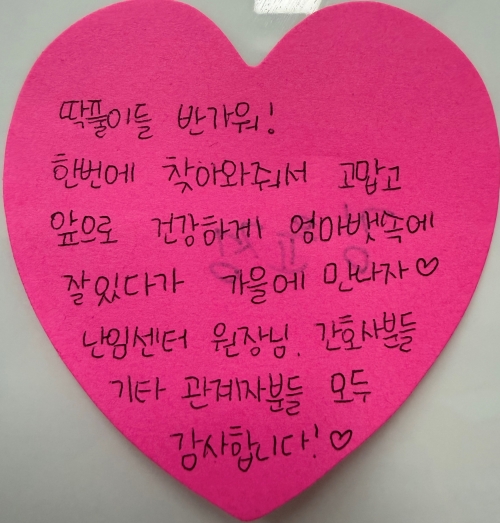 딱풀이들 반가워!
한번에 찾아와줘서 고맙고
앞으로 건강하게 엄마뱃속에
잘있다가 가을에 만나자♡
난임센터 원장님, 간호사분들
기타 관계자분들 모두
감사합니다! ♡